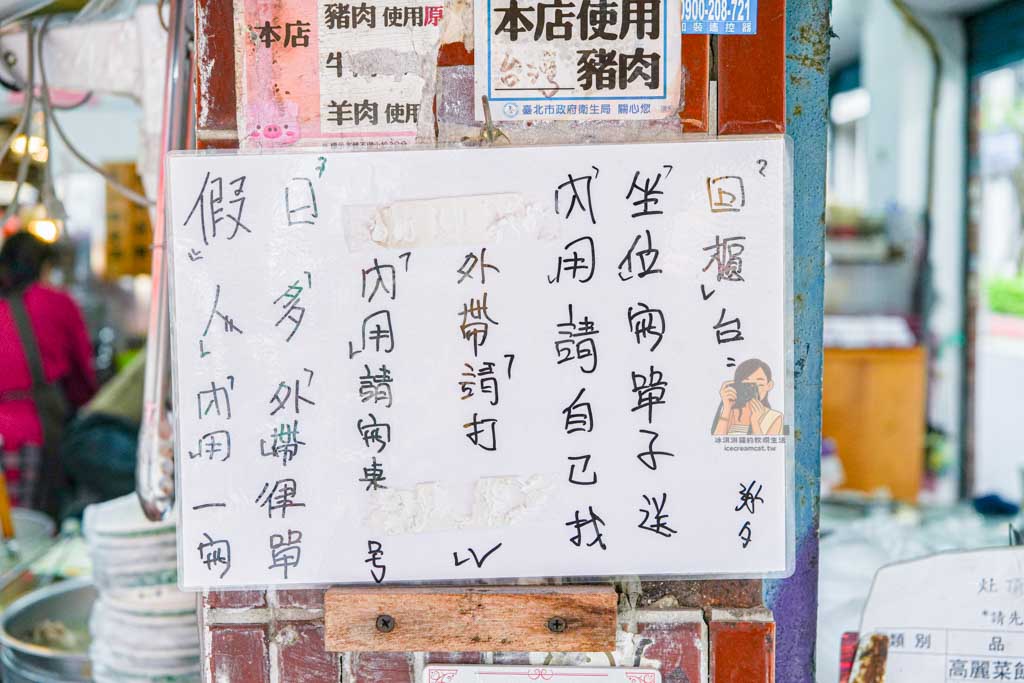 本店
豬肉 使用原
羊肉 使用
本店使用
台灣 豬肉
臺北市政府衛生局 關心您
0900-208-721
加裝遙控器
假日
人多
內用外帶
一律寫單
內用請寫桌号
外帶請打V
內用請自己找
坐位寫單子送
回櫃台
冰淇淋貓的軟爛生活
icecreamcat.tw
*請先
類別 品
高麗菜